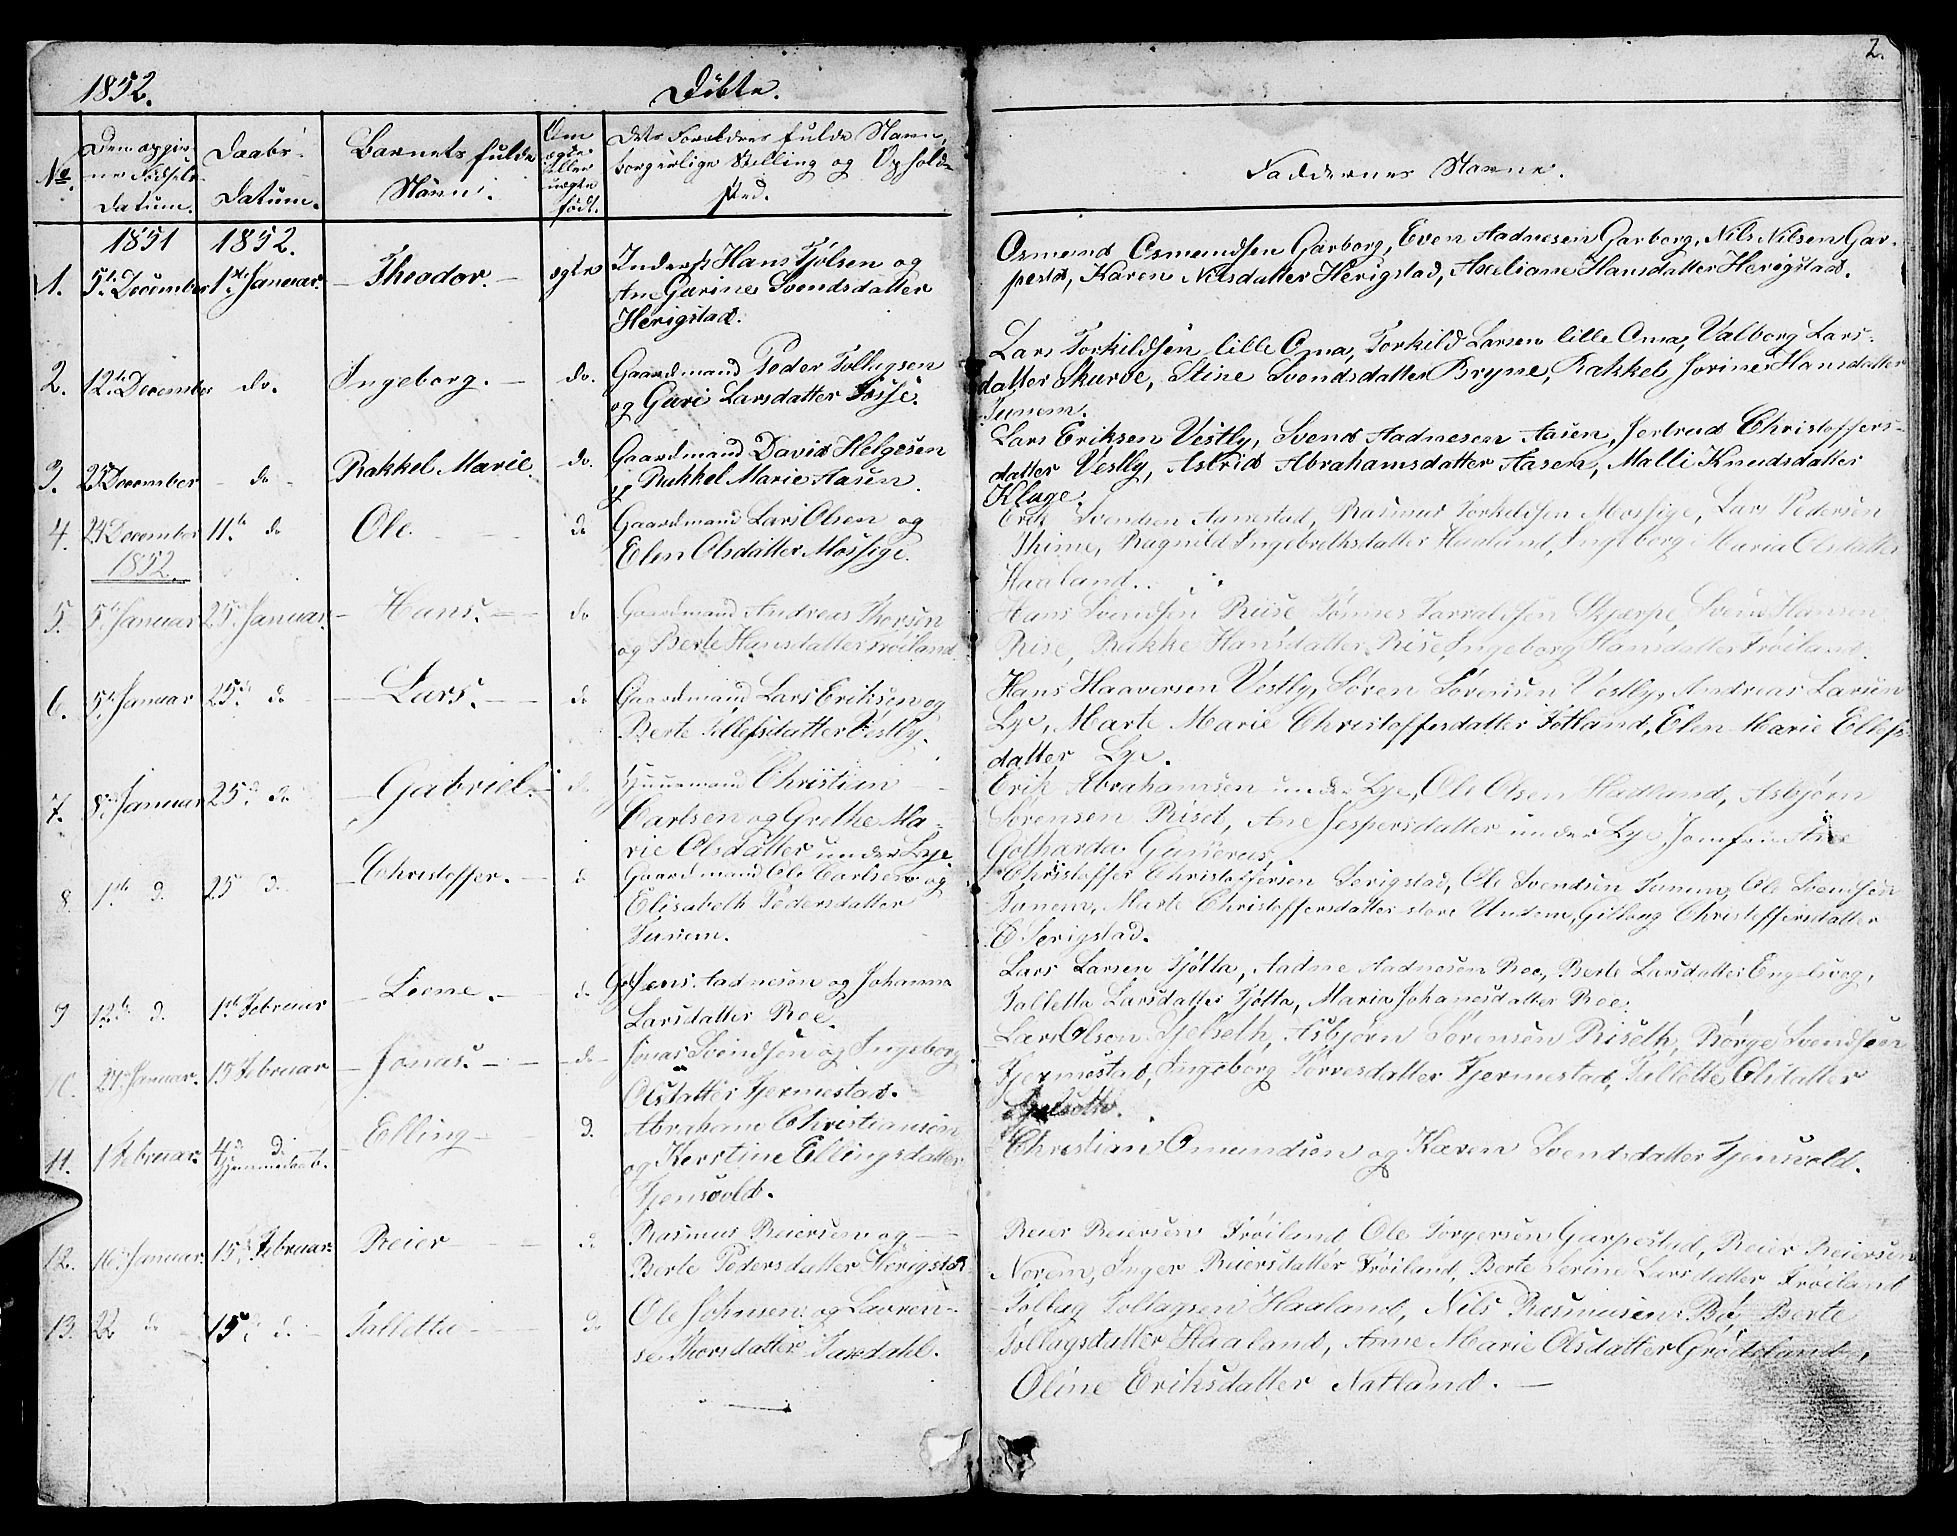 2.
1852. Döbte.
No. Den opgivne Födsels Datum. Daabs-Datum. Barnets fulde Navn. Om ægte eller uægte födt. Dets Forældres fulde Navn, borgerlige Stilling og Opholdssted. Faddernes Navne.
1851 1852.
1. 5te December 1ste Januar. Theodor. ægte
Inderst Hans Tjölsen og
Ane Gurine Svendsdatter
Herigstad.
Osmund Osmundsen Garborg, Even Aadnesen Garborg, Nils Nilsen Gar-
pestd, Karen Nilsdatter Herigstad, Axeliane Hansdatter Herigstad.
2. 12te December do. Ingeborg. do.
Gaardmand Peder Tollagsen
og Guri Larsdatter Fosse.
Lars Torkildsen lille Oma, Torkild Larsen lille Oma, Valborg Lars-
datter Skurve, Stine Svendsdatter Bryne, Rakkel Jorine Hansdatter
Tunem.
3. 25 December do Rakkel Marie. do.
Gaardmand David Helgesen
og Rakkel Marie Aasen.
Lars Eriksen Vestly, Svend Aadnesen Aasen, Jertrud Christoffers-
datter Vestly, Astrid Abrahamsdatter Aasen, Malli Knudsdatter
Kluge.
4. 24 December 11te do Ole. do
Gaardmand Lars Olsen og
Elen Olsdatter Mossige.
Erik Svendsen Aanestad, Rasmus Torkildsen Mossige, Lars Pedersen
Thime, Ragnild Ingebrethsdatter Haaland, Ingeborg Maria Olsdatter
Haaland.
1852.
5. 5te Januar 25de Januar. Hans. do
Gaardmand Andreas Thorsen
og Berte Hansdatter Fröiland
Hans Svendsen Riise, Tönnes Tarvaldsen Skjærpe, Svend Hansen
Rise, Rakke Hansdatter Rise, Ingeborg Hansdatter Fröiland.
6. 5te Januar 25de do Lars. do
Gaardmand Lars Eriksen og
Berte Ellefsdatter Vestly.
Hans Haaversen Vestly, Sören Sörensen Vestly, Andreas Larsen
Lye, Marte Marie Christoffersdatter Fotland, Elen Marie Ellefs-
datter Lye.
7. 8de Januar 25de do Gabriel. do
Huusmand Christian
Carlsen og Grethe Ma-
rie Olsdatter under Lye
Erik Abrahamsen under Lye, Ole Olsen Hadland, Asbjörn
Sörensen Riset, Ane Jespersdatter under Lye, Jomfru Ane
Gotharda Gunnerus.
8. 1ste d. 25 d. Christoffer. d
Gaardmand Ole Carlsen og
Elisabeth Pedersdatter
Tunem.
Christoffer Christoffersen Serigstad, Ole Svendsen Tunem, Ole Svendsen
Tunem, Marte Christoffersdatter store Undem, Gitlaug Christoffersdatter
Serigstad.
9 12te d. 1ste Februar Leone. d
Gd Jens Aadnesen og Johanna
Larsdatter Roe.
Lars Larsen Tjötta, Aadne Aadnesen Roe, Berte Larsdatter Engelsvog,
Talletta Larsdatter Tjötta, Maria Johanesdatter Roe.
10. 27 Januar. 15 Februar Jonas. do
Jonas Svendsen og Ingeborg
Olsdatter Tjermestad.
Lars Olson Gjelseth, Asbjörn Sörensen Riseth, Börge Svendsen
Tjermestad, Ingeborg Torresdatter Tjermestad, Tallette Olsdatter
11. 1 Februar. 4de d. Hjemmedaab. Elling d.
Abraham Christiansen
og Kerstine Ellingsdatter
Tjensvold.
Christian Omundsen og Karen Svendsdatter Tjensvold.
12. 16. Januar. 15de Februar. Reier d
Rasmus Reiersen og
Berte Pedersdatter Herigstd
Reier Reiersen Fröiland Ole Torgersen Garpestad, Reier Reiersen
Norem, Inger Reiersdatter Fröiland, Berte Serine Larsdatter Fröiland
13. 22 do 15de d. Talletta d
Ole Johnsen og Lauren-
se Thorsdatter Taxdahl.
Tollag Tollagsen Haaland, Nils Rasmusen Bö, Berte
Tollagsdatter Haaland, Anne Marie Olsdatter Grödeland,
Oline Eriksdatter Natland.